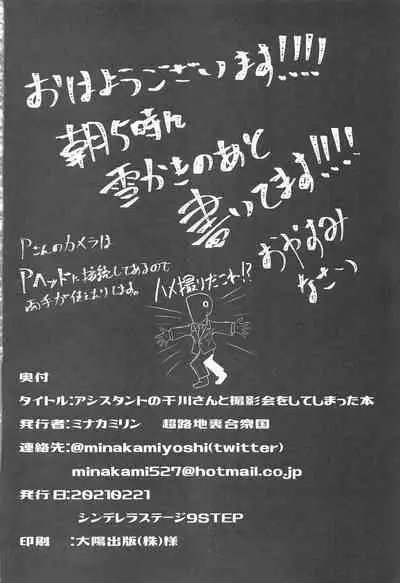 おはようございます!!!!
朝5時ん
雪かきのあと
書いてます!!!!
おやすみ
なさーい
Pさんのカメラは
Pヘッドに接続してあるので
両手が使えまりはす。
ハメ撮りだこれ!?
奥付
タイトル:アシスタントの千川さんと撮影会をしてしまった本
発行者:ミナカミリン 超路地裏合衆国
連絡先:@minakamiyoshi(twitter)
minakami527@hotmail.co.jp
発行日:20210221
シンデレラステージ9STEP
印刷 :大陽出版(株)様